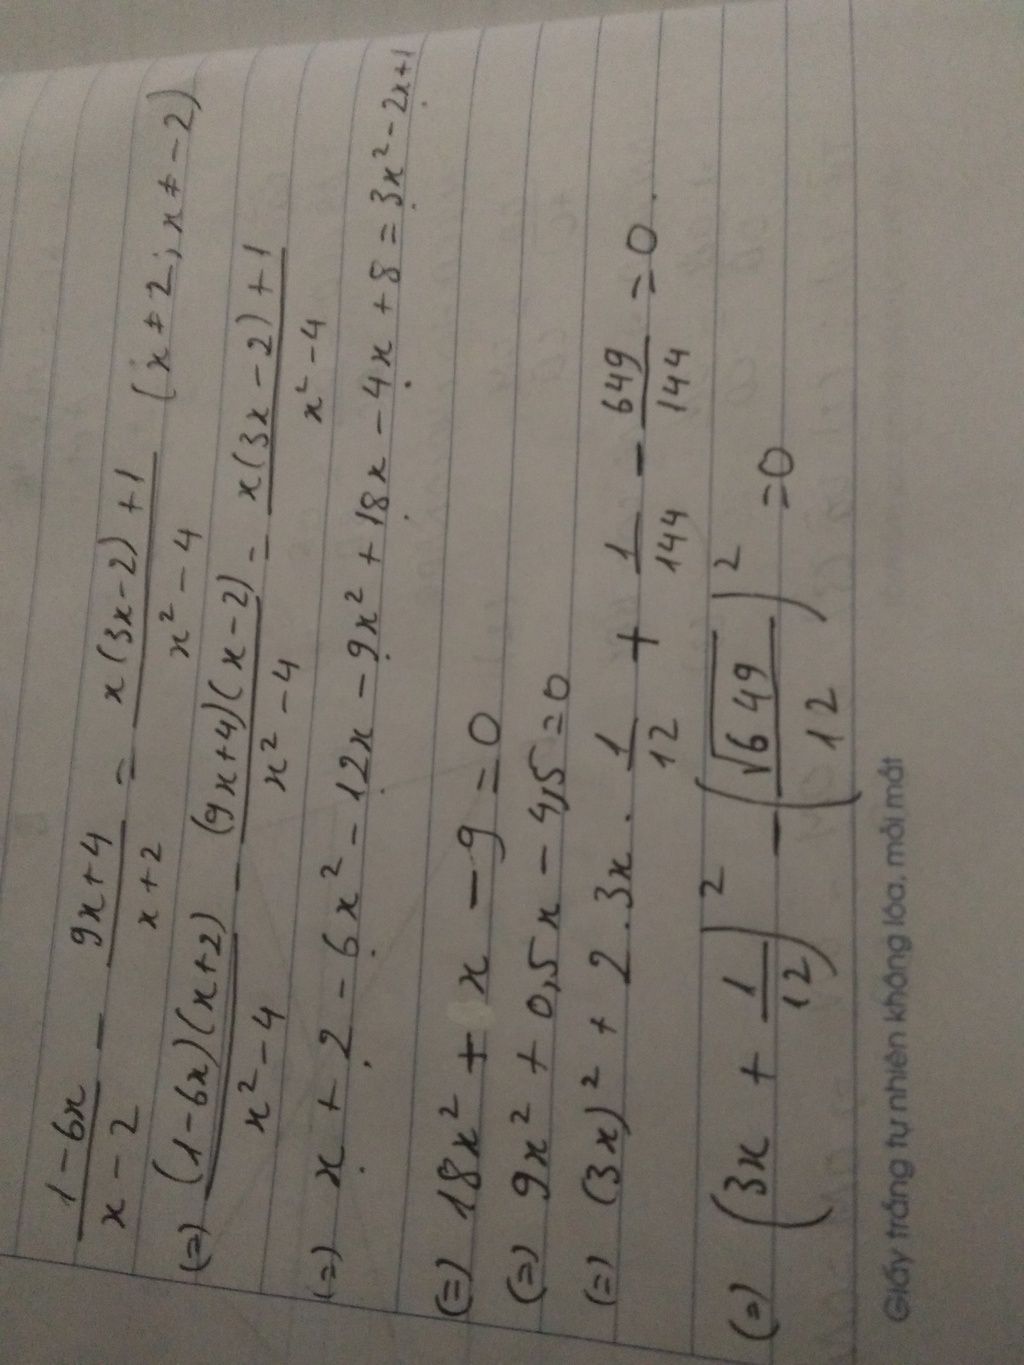 (1-6x)/(x-2) - (9x+4)/(x+2) = (x(3x-2)+1)/(x²-4) (x≠2; x≠-2)
(=) ((1-6x)(x+2))/(x²-4) - ((9x+4)(x-2))/(x²-4) = (x(3x-2)+1)/(x²-4)
(=) x+2-6x²-12x-9x²+18x-4x+8=3x²-2x+1
(=) 18x²+x-9=0
(=) 9x²+0,5x-4,5=0
(=) (3x)²+2.3x.1/12+1/144-649/144=0.
(=) (3x+1/12)²-(√649/12)²=0
Giấy trắng tự nhiên không lóa, mỏi mắt